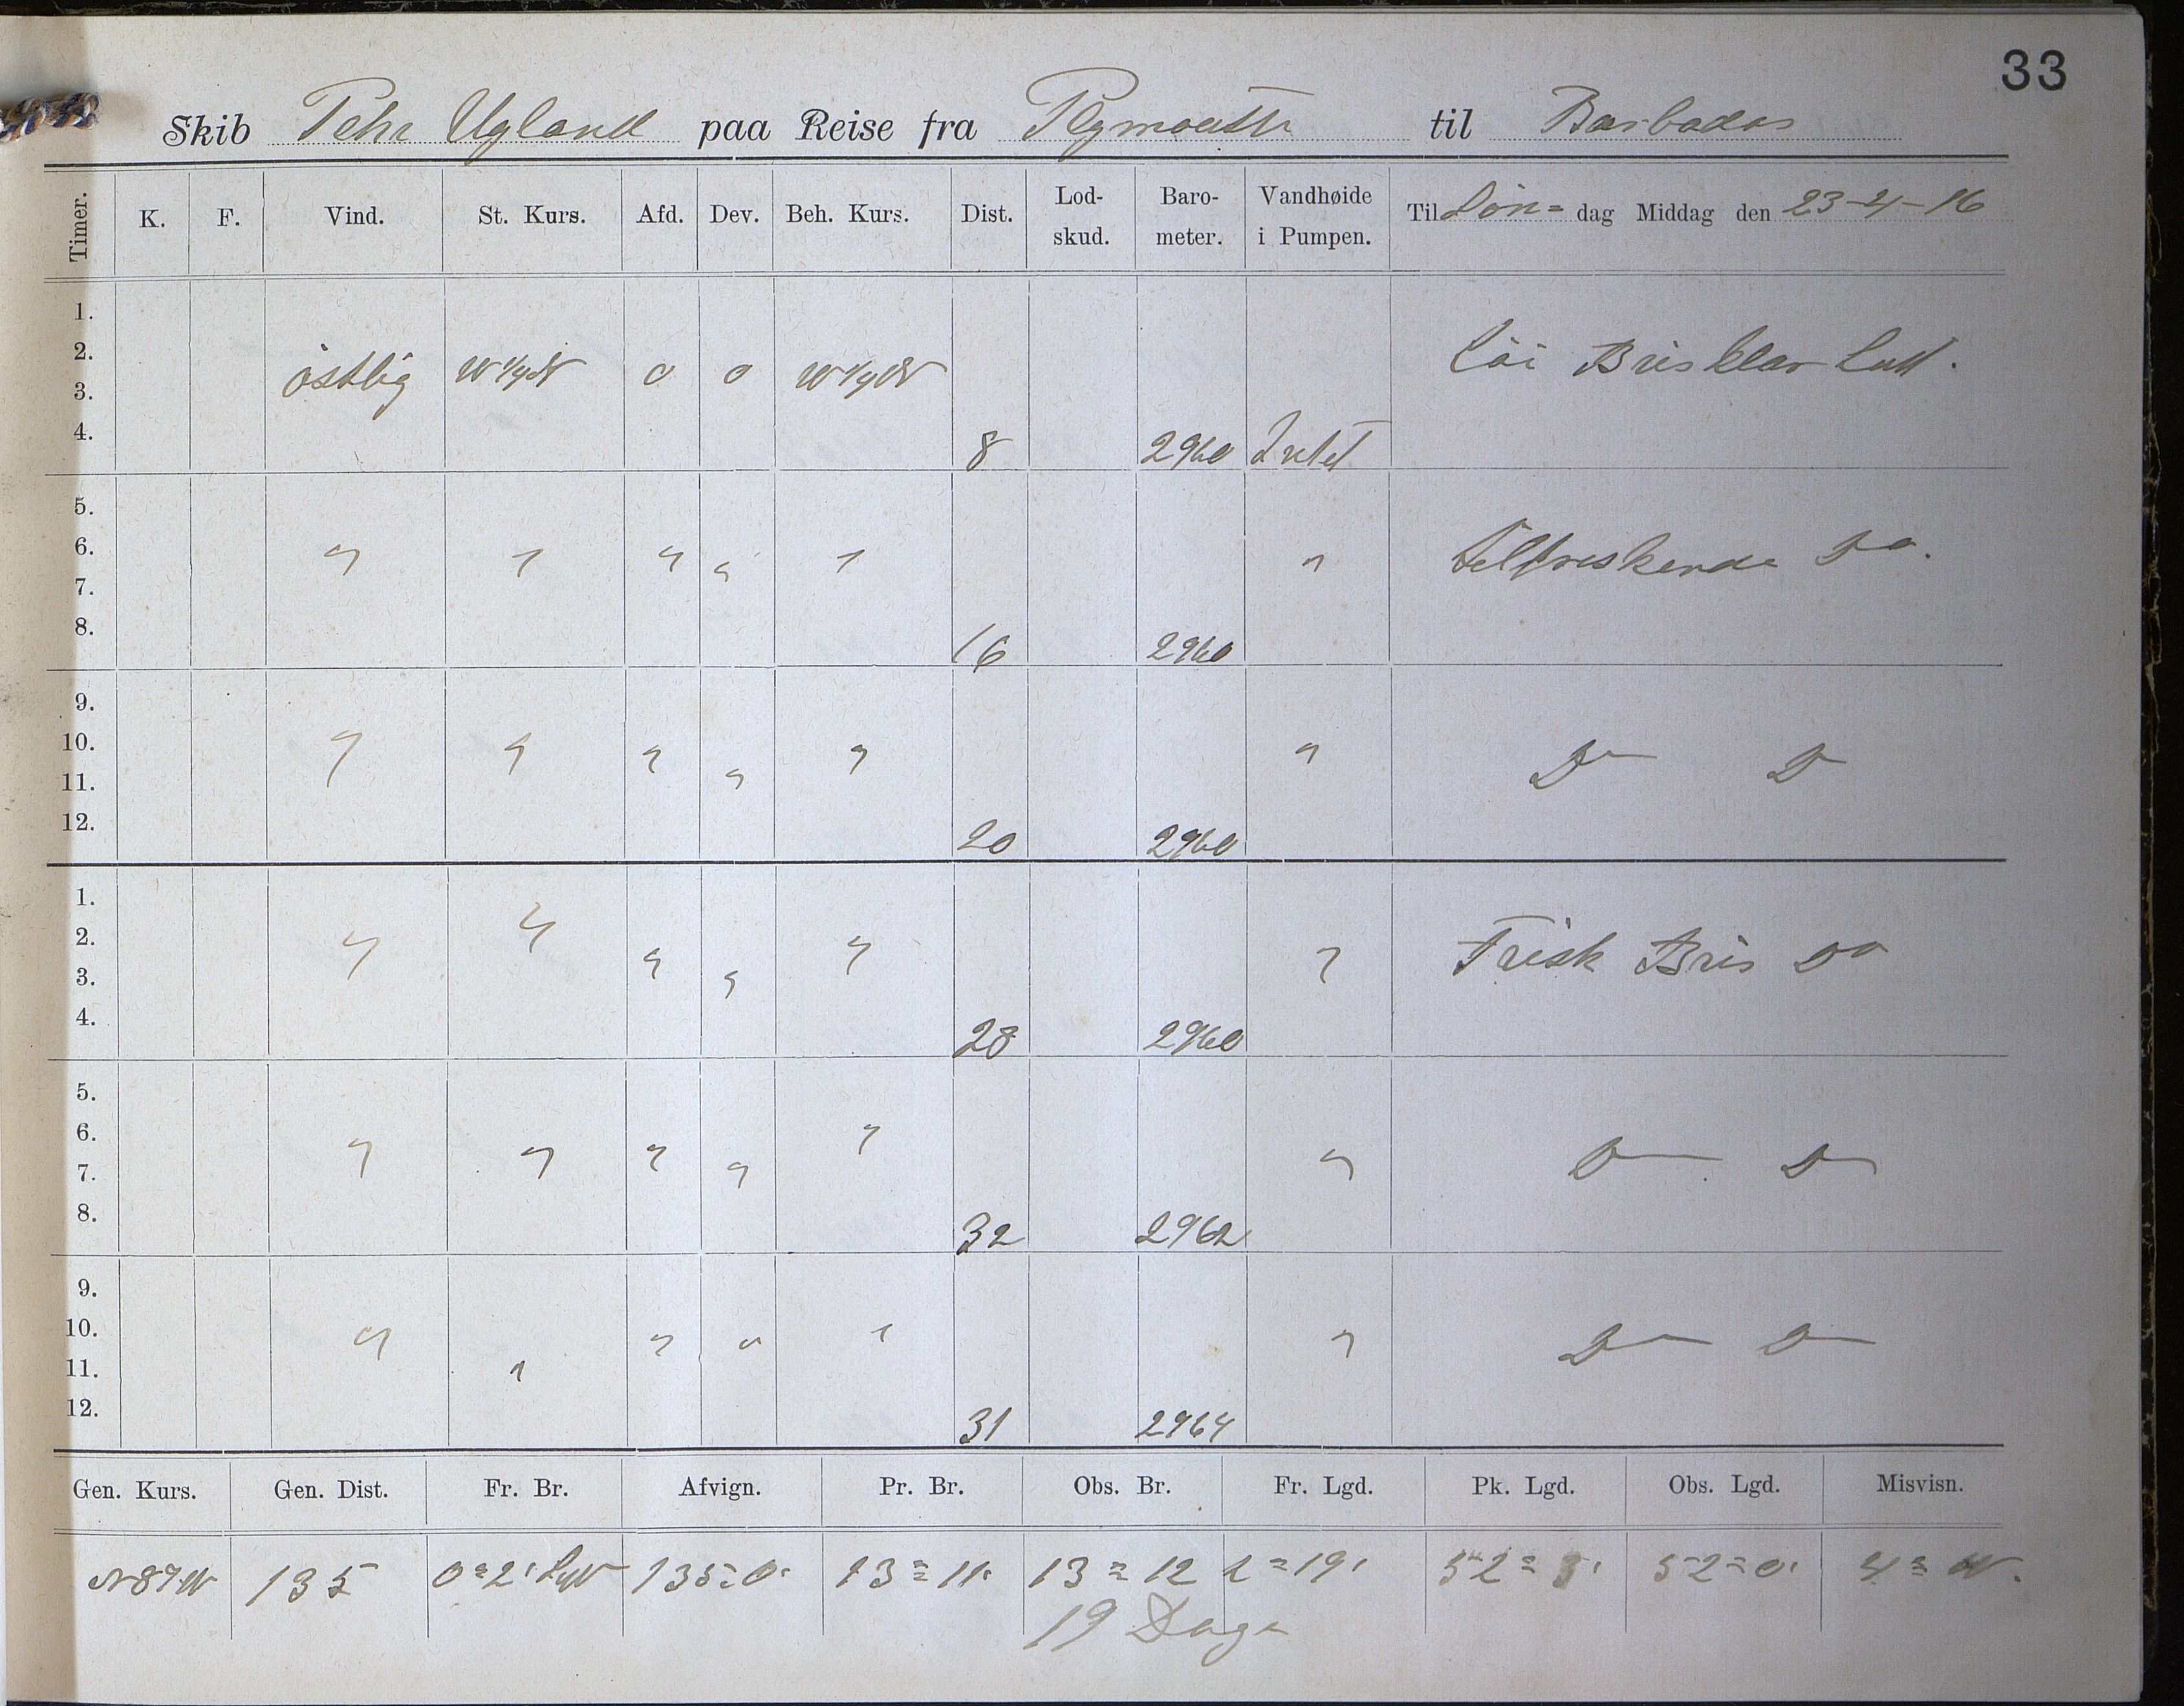 33
Skib Pehr Ugland paa Reise fra Plymouth til Barbados
Timer. K. F. Vind. St. Kurs. Afd. Dev. Beh. Kurs. Dist. Lod-skud. Baro-meter. Vandhøide i Pumpen. Til Søn= dag Middag den 23-4-16
1.
2. Löi Bris klar Luft.
3. östlig W 1/4 N 0 0 W 1/4 N
4. 8 2960 Intet
5.
6. " " " " " " tilfriskende Do.
7.
8. 16 2960
9.
10. " " " " " " Do D
11.
12. 20 2960
1.
2. " " " " " " Frisk Bris Do
3.
4. 28 2960
5.
6. " " " " " " D D
7.
8. 32 2962
9.
10. " " " " " " D D
11.
12. 31 2964
Gen. Kurs. Gen. Dist. Fr. Br. Afvign. Pr. Br. Obs. Br. Fr. Lgd. Pk. Lgd. Obs. Lgd. Misvisn.
N 89 W 135 0=2' 135=0' 13=11' 13=12 2=19' 52=3' 52=0' 4= W.
19 Dage